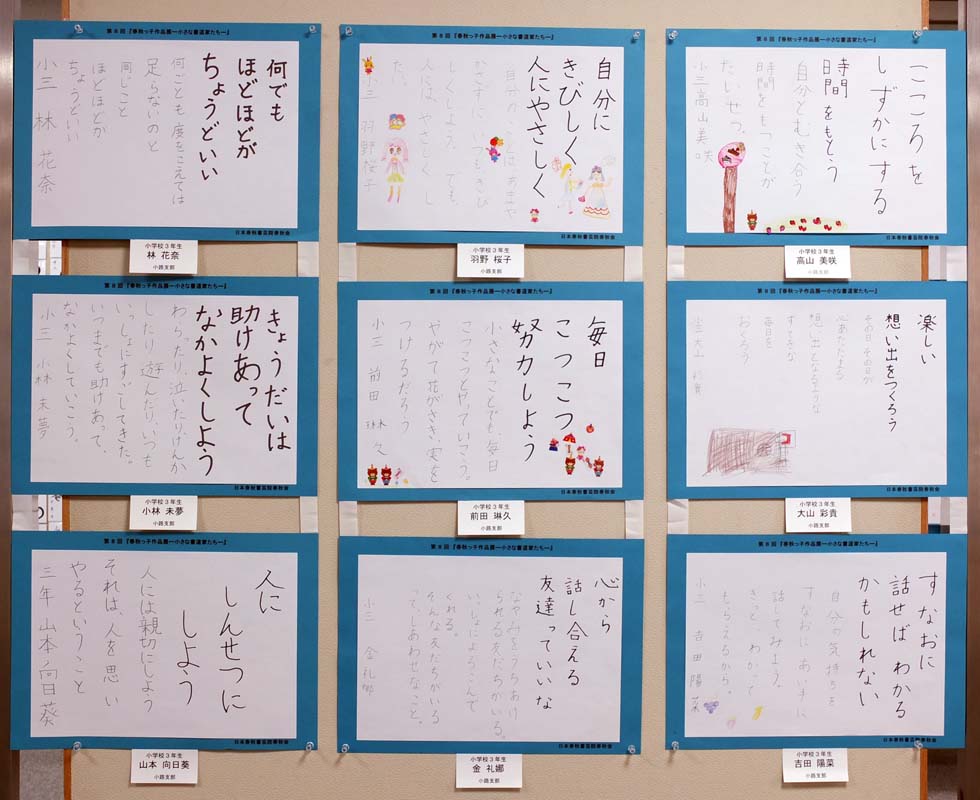 第8回『春秋っ子作品展―小さな書道家たち―』
何でも
ほどほどが
ちょうどいい
何ごとも度をこえては
足らないのと
同じこと
ほどほどが
ちょうどいい
小三 林 花奈
日本春秋書芸院春秋会
小学校3年生
林 花奈
小路支部
第8回『春秋っ子作品展―小さな書道家たち―』
自分に
きびしく
人にやさしく
自分のことはあまや
かさずに、いつもきび
しくしよう。でも、
人には、やさしくし
たい。
小三 羽野桜子
日本春秋書芸院春秋会
小学校3年生
羽野 桜子
小路支部
第8回『春秋っ子作品展―小さな書道家たち―』
こころを
しずかにする
時間をもとう
自分とむき合う
時間をもつことが
たいせつ。
小三 高山美咲
日本春秋書芸院春秋会
小学校3年生
高山 美咲
小路支部
第8回『春秋っ子作品展―小さな書道家たち―』
きょうだいは
助けあって
なかよくしよう
わらったり、泣いたり、けんか
したり、遊んだり、いつも
いっしょにすごしてきた。
いつまでも助けあって、
なかよくしていこう。
小三 小林未夢
小学校3年生
小林 未夢
小路支部
第8回『春秋っ子作品展―小さな書道家たち―』
毎日
こつこつ
努力しよう
小さなことでも、毎日
こつこつとやっていこう。
やがて花がさき、実を
つけるだろう
小三 前田琳久
日本春秋書芸院春秋会
小学校3年生
前田 琳久
小路支部
第8回『春秋っ子作品展―小さな書道家たち―』
楽しい
想い出をつくろう
その日その日が
心あたたまる
想い出となるような
すてきな
毎日を
おくろう
小三 大山 彩貴
日本春秋書芸院春秋会
小学校3年生
大山 彩貴
小路支部
第8回『春秋っ子作品展―小さな書道家たち―』
人に
しんせつに
しよう
人には親切にしよう
それは、人を思い
やるということ
三年 山本向日葵
日本春秋書芸院春秋会
小学校3年生
山本 向日葵
小路支部
第8回『春秋っ子作品展―小さな書道家たち―』
心から
話し合える
友達っていいな
なやみをうちあけ
られる友だちがいる。
いっしょによろこんで
くれる。
そんな友だちがいる
って、しあわせなこと。
小三 金礼娜
日本春秋書芸院春秋会
小学校3年生
金 礼娜
小路支部
第8回『春秋っ子作品展―小さな書道家たち―』
すなおに
話せば わかる
かもしれない
自分の気持ちを
すなおに あい手に
話してみよう。
きっと、わかって
もらえるから。
小三 吉田陽菜
日本春秋書芸院春秋会
小学校3年生
吉田 陽菜
小路支部